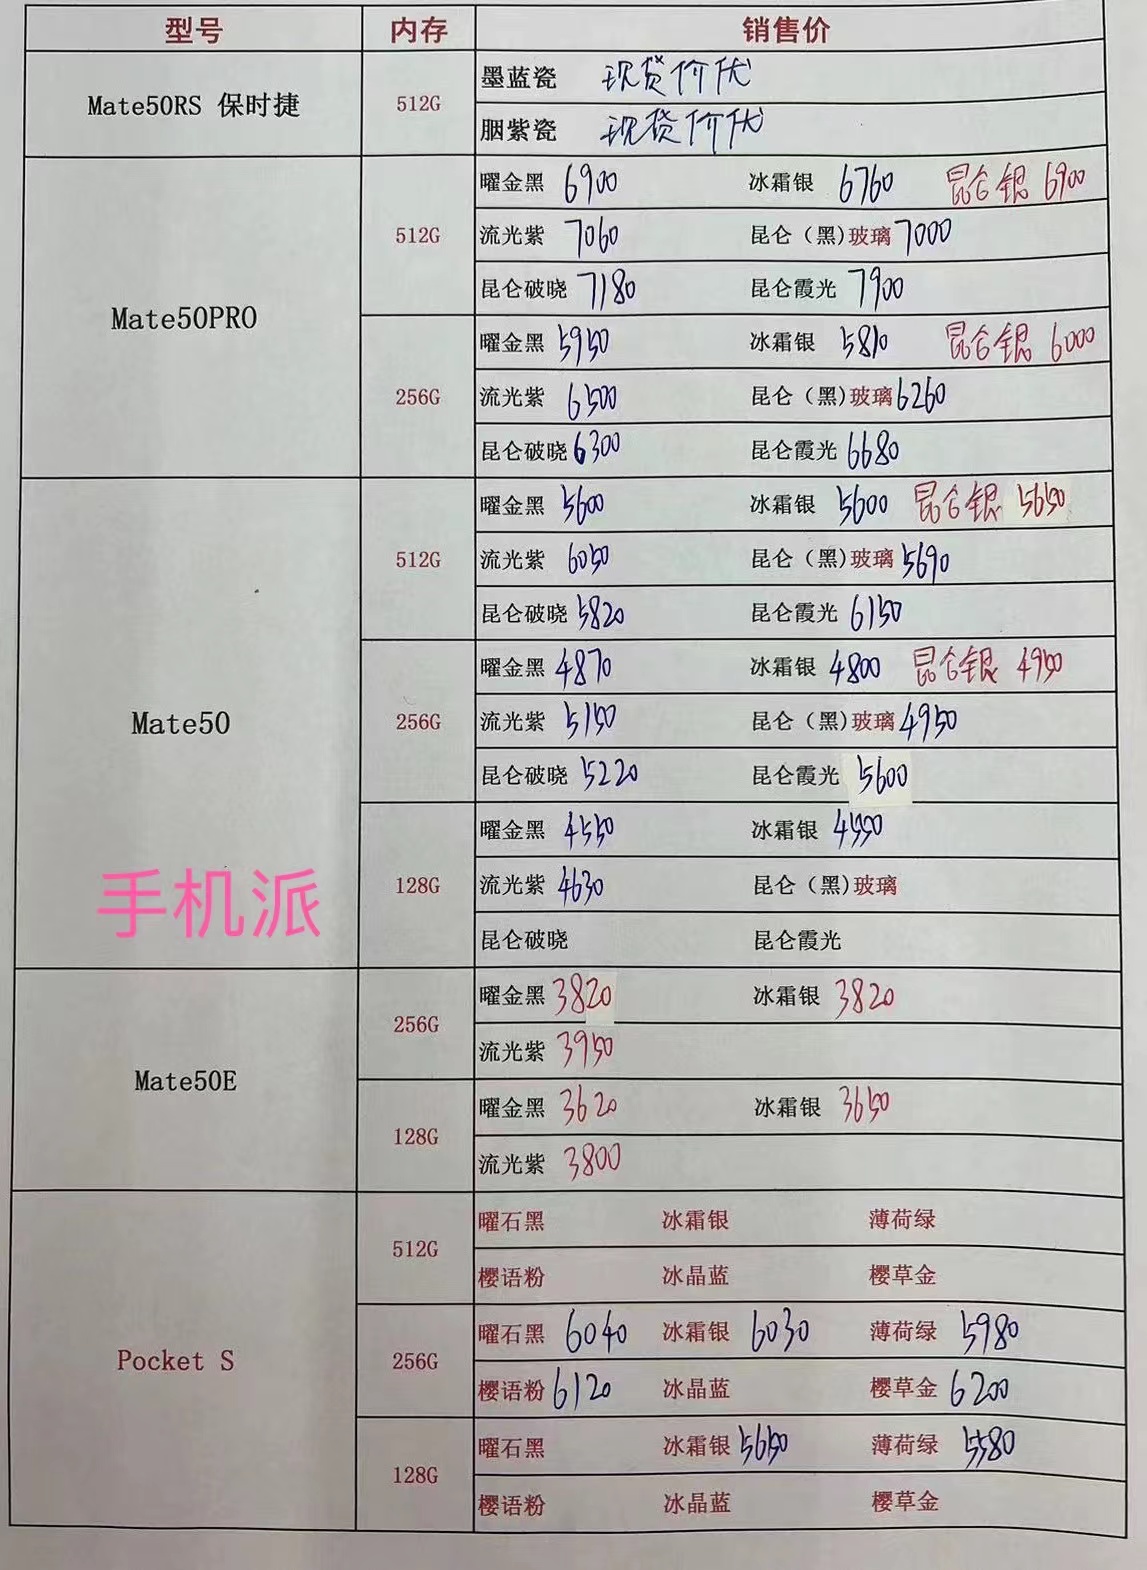 型号 内存 销售价
Mate50RS 保时捷 512G
墨蓝瓷 现货价优
胭紫瓷 现货价优
Mate50PRO
512G
曜金黑 6900 冰霜银 6760 昆仑银 6900
流光紫 7060 昆仑（黑)玻璃 7000
昆仑破晓 7180 昆仑霞光 7900
256G
曜金黑 5950 冰霜银 5810 昆仑银 6000
流光紫 6500 昆仑（黑)玻璃 6260
昆仑破晓 6300 昆仑霞光 6680
Mate50
512G
曜金黑 5600 冰霜银 5600 昆仑银 5650
流光紫 6050 昆仑（黑)玻璃 5690
昆仑破晓 5820 昆仑霞光 6150
256G
曜金黑 4870 冰霜银 4800 昆仑银 4950
流光紫 5150 昆仑（黑)玻璃 4950
昆仑破晓 5220 昆仑霞光 5600
128G
曜金黑 4550 冰霜银 4550
流光紫 4630 昆仑（黑)玻璃
昆仑破晓 昆仑霞光
手机派
Mate50E
256G
曜金黑 3820 冰霜银 3820
流光紫 3950
128G
曜金黑 3620 冰霜银 3650
流光紫 3800
Pocket S
512G
曜石黑 冰霜银 薄荷绿
樱语粉 冰晶蓝 樱草金
256G
曜石黑 6040 冰霜银 6030 薄荷绿 5980
樱语粉 6120 冰晶蓝 樱草金 6200
128G
曜石黑 冰霜银 5650 薄荷绿 5580
樱语粉 冰晶蓝 樱草金